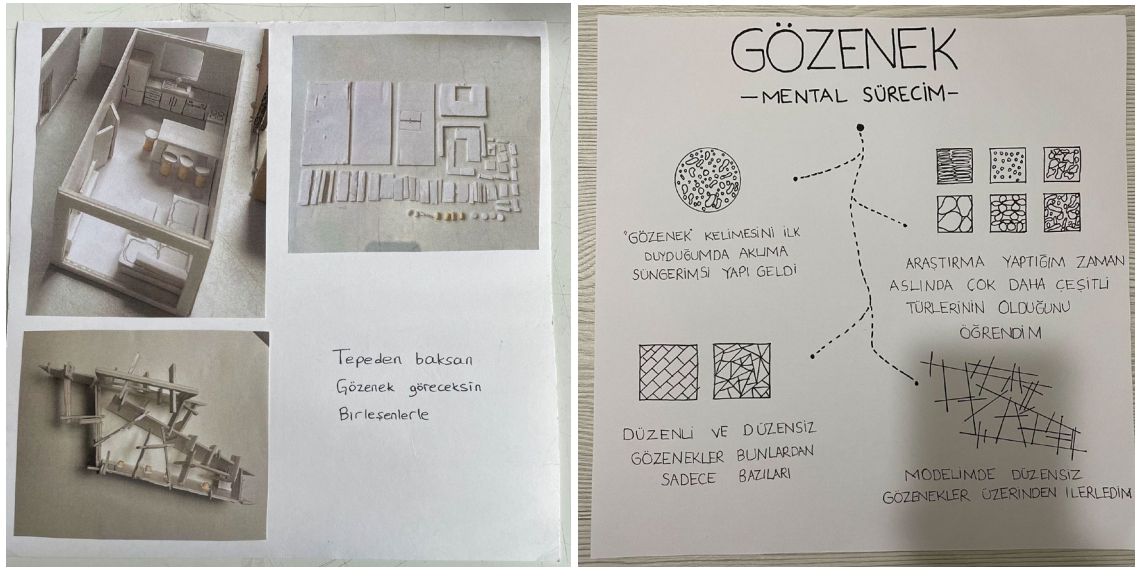 Tepeden baksan
Gözenek göreceksin
Birleşenlerle
GÖZENEK
-MENTAL SÜRECİM-
"GÖZENEK" KELİMESİNİ İLK
DUYDUĞUMDA AKLIMA
SÜNGERİMSİ YAPI GELDİ
ARAŞTIRMA YAPTIĞIM ZAMAN
ASLINDA ÇOK DAHA ÇEŞİTLİ
TÜRLERİNİN OLDUĞUNU
ÖĞRENDİM
DÜZENLİ VE DÜZENSİZ
GÖZENEKLER BUNLARDAN
SADECE BAZILARI
MODELİMDE DÜZENSİZ
GÖZENEKLER ÜZERİNDEN İLERLEDİM